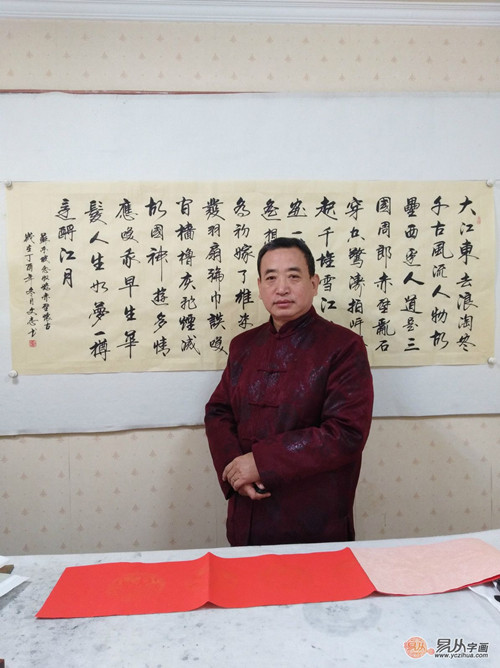 大江東去浪淘尽
千古風流人物故
壘西邊人道是三
國周郎赤壁亂石
穿空驚濤拍岸
起千堆雪江
画一
遥想
初嫁了雄姿
發羽扇綸巾談
間檣櫓灰飛煙滅
故國神遊多情
應笑我早生華
髮人生如夢一樽
還酹江月
蘇東坡念奴嬌赤壁懷古
歲在丁酉年冬月文志书
易从字画
www.yczihua.com